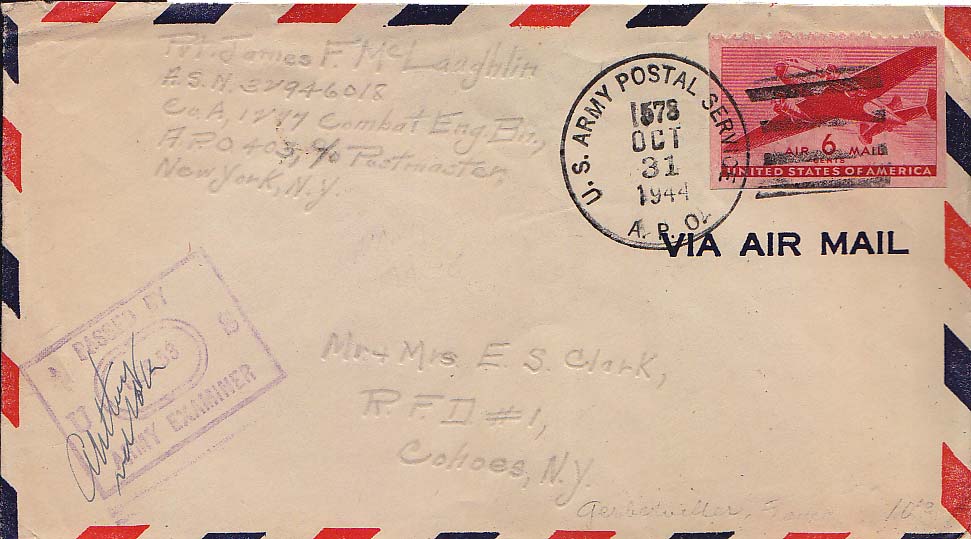 Pvt. James F. McLaughlin
A.S.N. 32946018
Co.A, 1277 Combat Eng. Bn.,
A.P.O 403, c/o Postmaster,
New York, N.Y.
U.S. ARMY POSTAL SERVICE
1578
OCT
31
1944
A. P. O.
AIR 6 MAIL
CENTS
UNITED STATES OF AMERICA
VIA AIR MAIL
PASSED BY
ARMY EXAMINER
Mr & Mrs. E. S. Clark,
R.F.D #1,
Cohoes, N.Y.